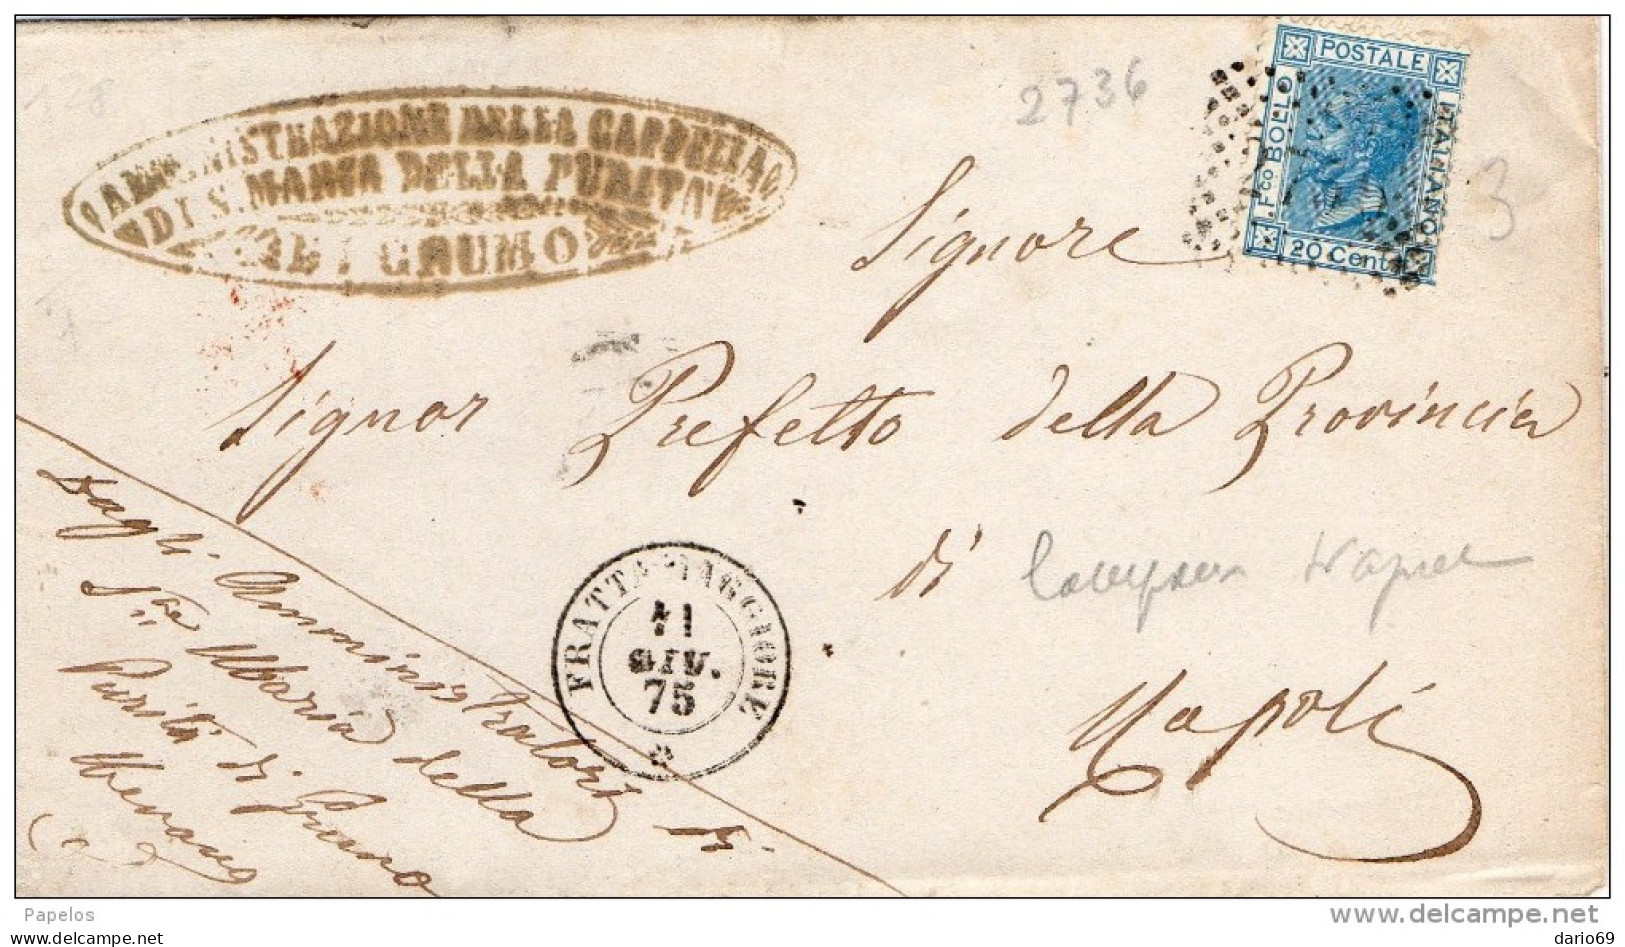 AMMINISTRAZIONE DELLA CAPPELLA
DI S. MARIA DELLA PURITA'
DI GRUMO
2736
POSTALE
ITALIANO
F.co BOLLO
20 Cent
3
Signore
Signor Prefetto della Provincia
di
Napoli
FRATTAMAGGIORE
11
GIU.
75
Dagli Amministratori di
S.ta Maria della
Purità di Grumo
Nevano
Papelos
www.delcampe.net
dario69